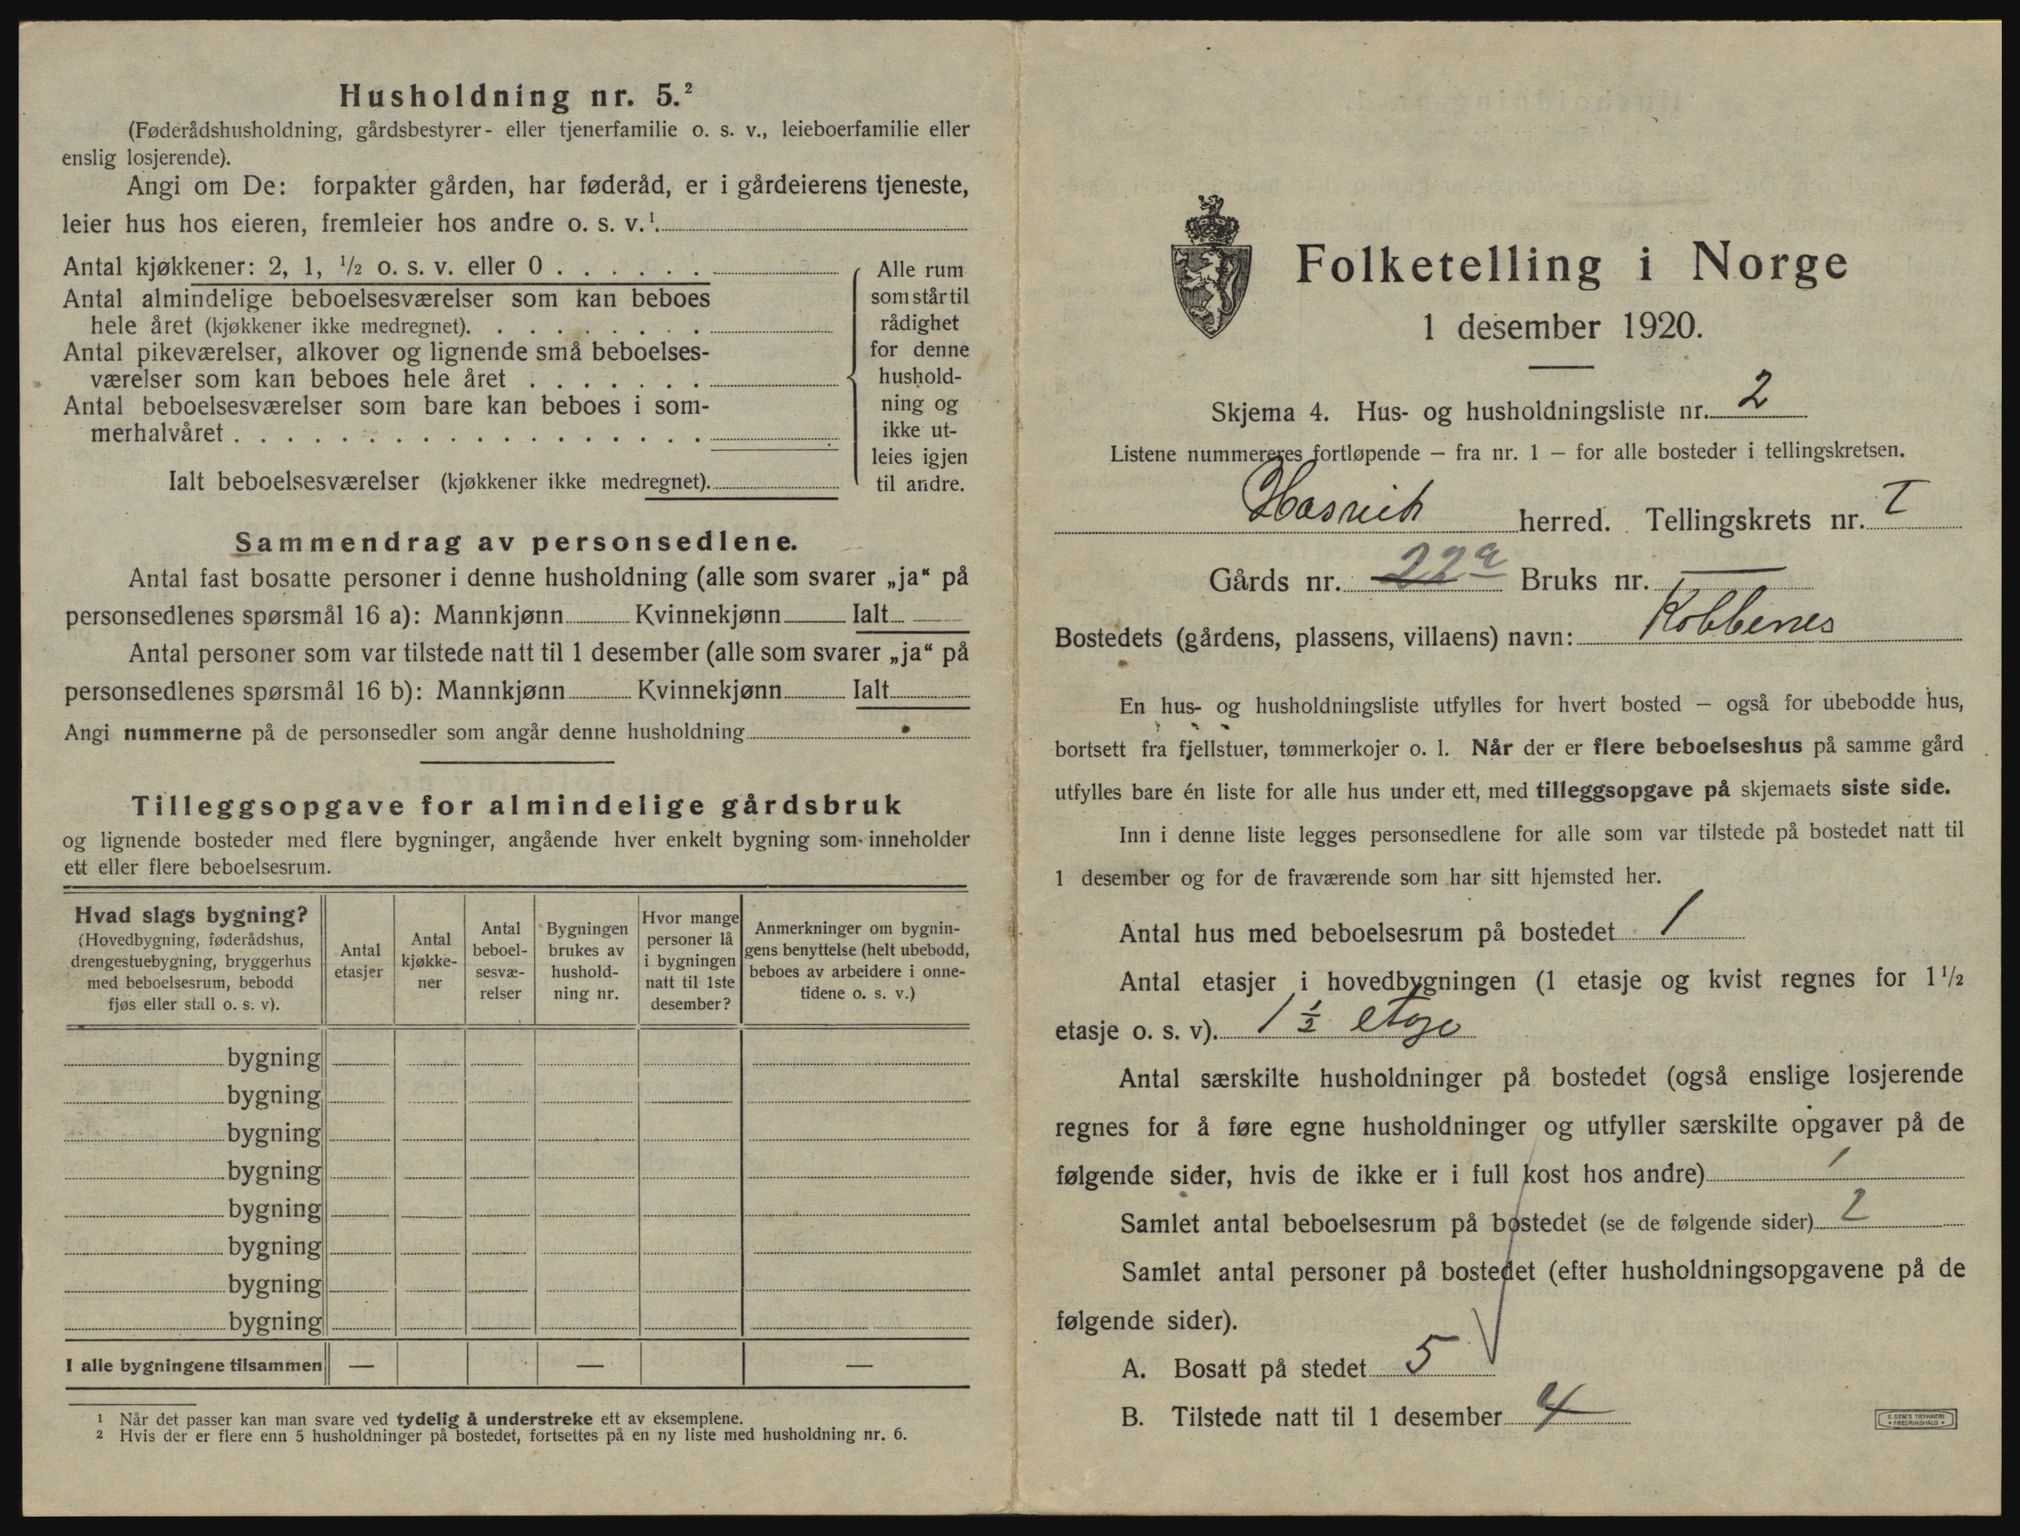 Husholdning nr. 5.²
(Føderådshusholdning, gårdsbestyrer- eller tjenerfamilie o. s. v., leieboerfamilie eller
enslig losjerende).
Angi om De: forpakter gården, har føderåd, er i gårdeierens tjeneste,
leier hus hos eieren, fremleier hos andre o. s. v.¹.
Antal kjøkkener: 2, 1, ½ o. s. v. eller 0 . . . . . .
Antal almindelige beboelsesværelser som kan beboes
hele året (kjøkkener ikke medregnet). . . . . . . . .
Antal pikeværelser, alkover og lignende små beboelses-
værelser som kan beboes hele året . . . . . . .
Antal beboelsesværelser som bare kan beboes i som-
merhalvåret . . . . . . . . . . . . . . . . . .
Ialt beboelsesværelser (kjøkkener ikke medregnet).
Alle rum
som står til
rådighet
for denne
hushold-
ning og
ikke ut-
leies igjen
til andre.
Sammendrag av personsedlene.
Antal fast bosatte personer i denne husholdning (alle som svarer „ja“ på
personsedlenes spørsmål 16 a): Mannkjønn Kvinnekjønn Ialt
Antal personer som var tilstede natt til 1 desember (alle som svarer „ja“ på
personsedlenes spørsmål 16 b): Mannkjønn Kvinnekjønn Ialt
Angi nummerne på de personsedler som angår denne husholdning
Tilleggsopgave for almindelige gårdsbruk
og lignende bosteder med flere bygninger, angående hver enkelt bygning som inneholder
ett eller flere beboelsesrum.
Hvad slags bygning?
(Hovedbygning, føderådshus,
drengestuebygning, bryggerhus
med beboelsesrum, bebodd
fjøs eller stall o. s. v).
Antal
etasjer
Antal
kjøkke-
ner
Antal
beboel-
sesvæ-
relser
Bygningen
brukes av
hushold-
ning nr.
Hvor mange
personer lå
i bygningen
natt til 1ste
desember?
Anmerkninger om bygnin-
gens benyttelse (helt ubebodd,
beboes av arbeidere i onne-
tidene o. s. v.)
bygning
bygning
bygning
bygning
bygning
bygning
bygning
bygning
I alle bygningene tilsammen — — —
¹ Når det passer kan man svare ved tydelig å understreke ett av eksemplene.
² Hvis der er flere enn 5 husholdninger på bostedet, fortsettes på en ny liste med husholdning nr. 6.
Folketelling i Norge
1 desember 1920.
Skjema 4. Hus- og husholdningsliste nr. 2
Listene nummereres fortløpende — fra nr. 1 — for alle bosteder i tellingskretsen.
Hasvik herred. Tellingskrets nr. I
Gårds nr. 22a Bruks nr. —
Bostedets (gårdens, plassens, villaens) navn: Kobbenes
En hus- og husholdningsliste utfylles for hvert bosted — også for ubebodde hus,
bortsett fra fjellstuer, tømmerkojer o. l. Når der er flere beboelseshus på samme gård
utfylles bare én liste for alle hus under ett, med tilleggsopgave på skjemaets siste side.
Inn i denne liste legges personsedlene for alle som var tilstede på bostedet natt til
1 desember og for de fraværende som har sitt hjemsted her.
Antal hus med beboelsesrum på bostedet 1
Antal etasjer i hovedbygningen (1 etasje og kvist regnes for 1½
etasje o. s. v). 1 ½ etage
Antal særskilte husholdninger på bostedet (også enslige losjerende
regnes for å føre egne husholdninger og utfyller særskilte opgaver på de
følgende sider, hvis de ikke er i full kost hos andre) 1
Samlet antal beboelsesrum på bostedet (se de følgende sider) 2
Samlet antal personer på bostedet (efter husholdningsopgavene på de
følgende sider).
A. Bosatt på stedet 5
B. Tilstede natt til 1 desember 4
E. SEM'S TRYKKERI
• FREDRIKSHALD •